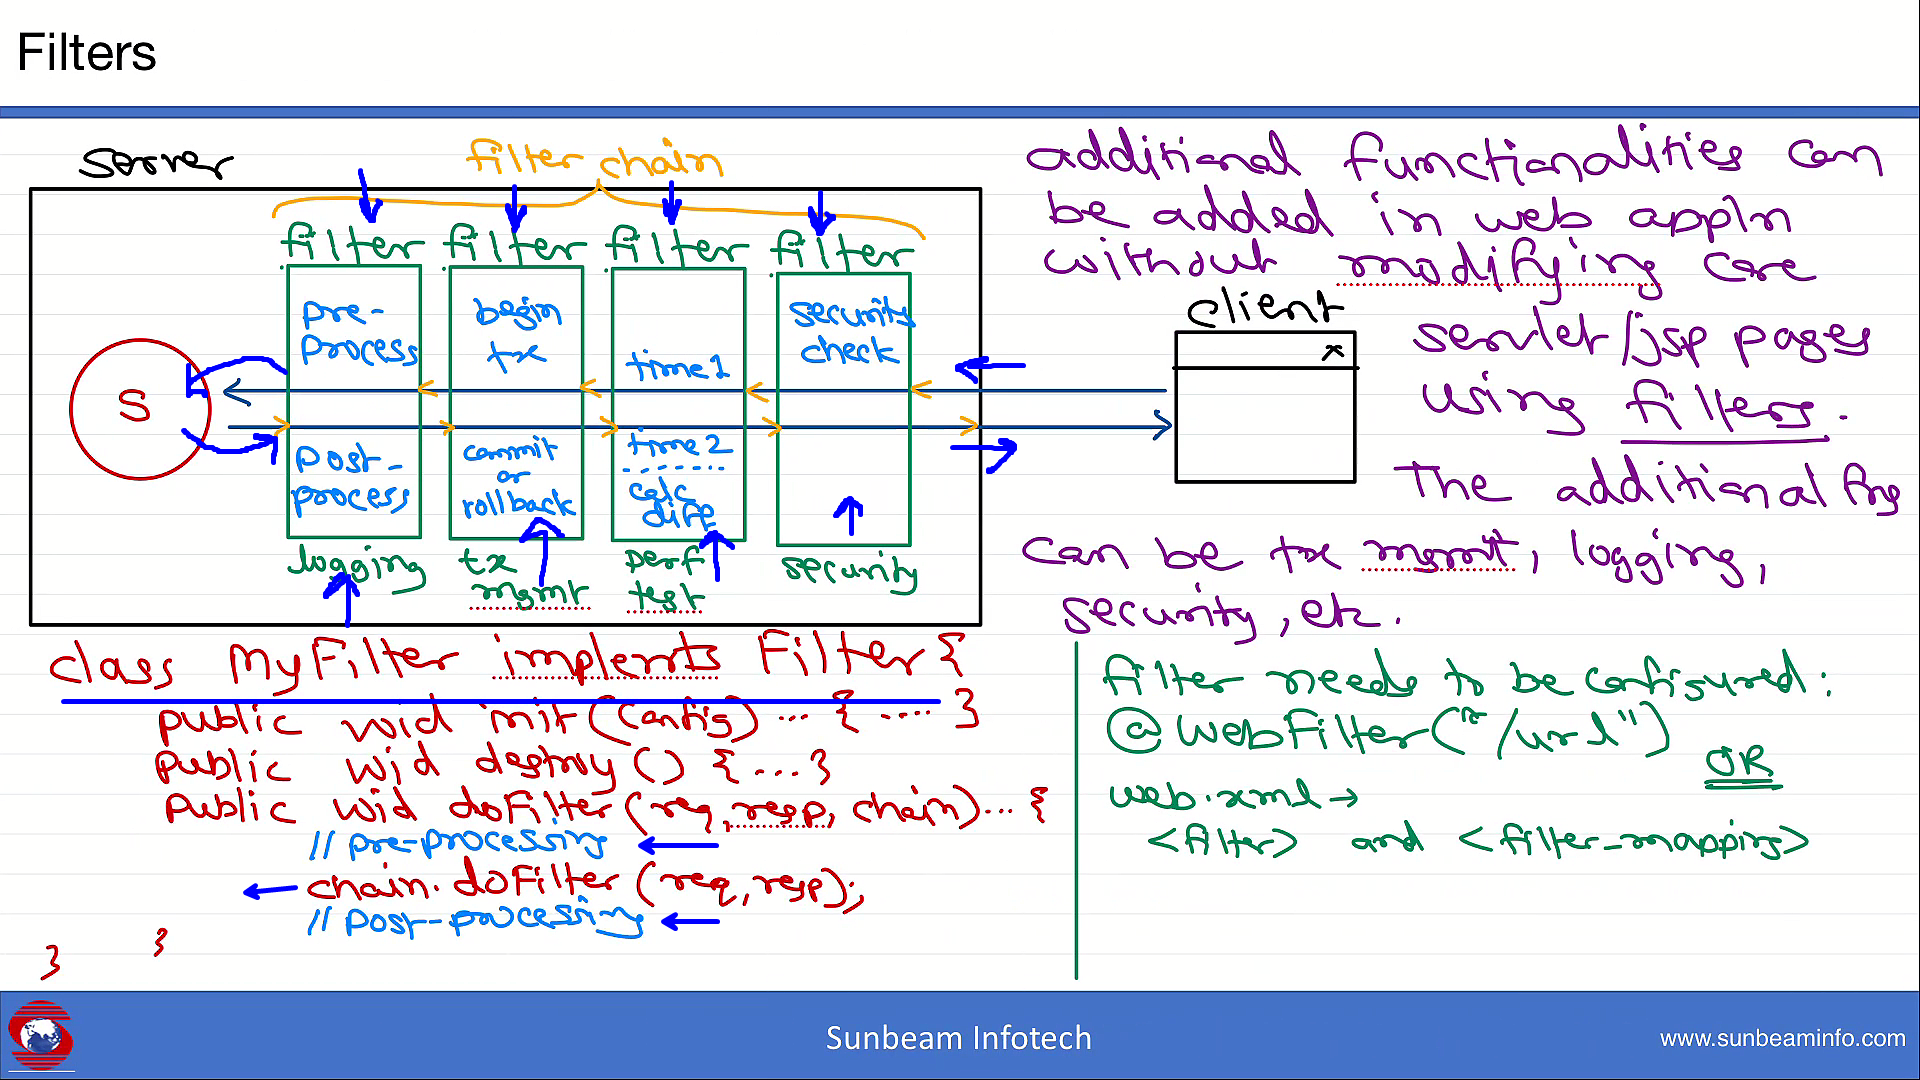 Filters
server
filter chain
filter filter filter filter
pre-process
begin tx
time1
security check
S
post-process
commit or rollback
time2
calc diff
logging
tx mgmt
perf test
security
client
x
additional functionalities can
be added in web appln
without modifying core
servlet/jsp pages
using filters.
The additional
can be tx mgmt, logging,
security, etc.
class MyFilter implemts Filter {
public void init(config) ... { .... }
public void destroy() { ... }
public void doFilter(req, resp, chain) ... {
// pre-processing
chain.doFilter(req, resp);
// post-processing
}
}
filter needs to be configured:
@WebFilter("/url")
OR
web.xml →
<filter> and <filter-mapping>
Sunbeam Infotech
www.sunbeaminfo.com